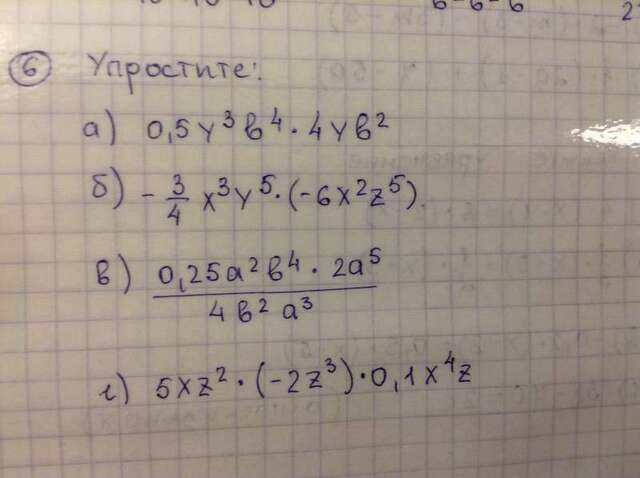 6 - 6 - 6
⑥ Упростите:
а) 0,5y³b⁴ · 4yb²
б) -3/4 x³y⁵ · (-6x²z⁵).
в) 0,25a²b⁴ · 2a⁵
4b²a³
г) 5xz² · (-2z³) · 0,1x⁴z